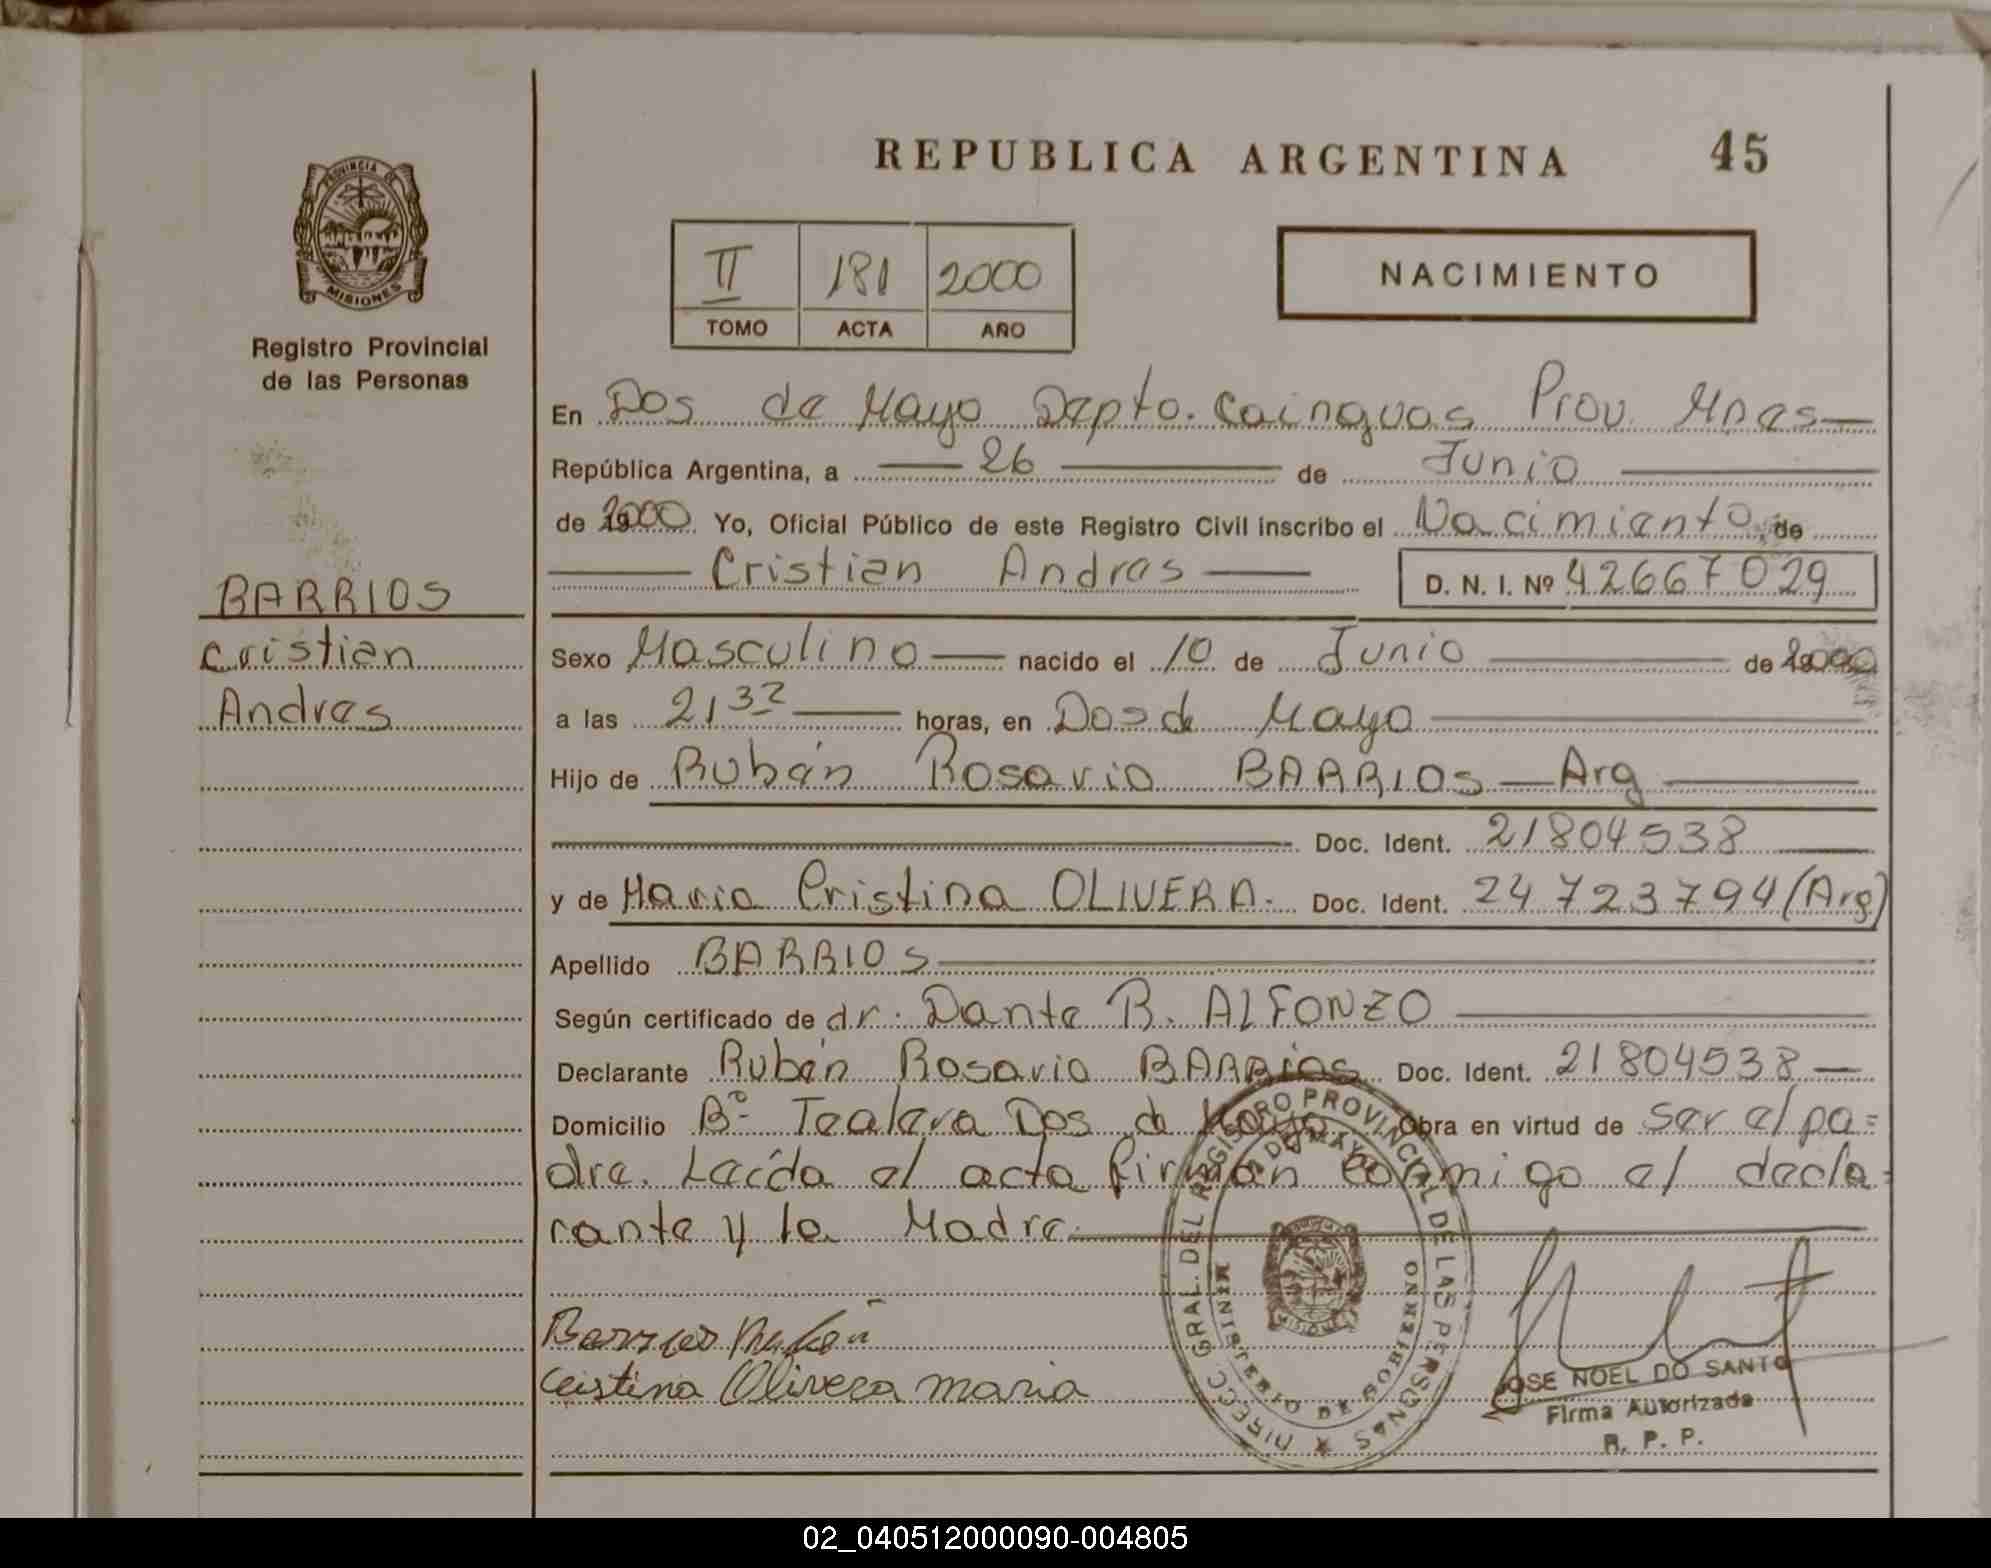 REPUBLICA ARGENTINA 45
PROVINCIA DE
MISIONES
Registro Provincial
de las Personas
II 181 2000
TOMO ACTA AÑO
NACIMIENTO
BARRIOS
Cristian
Andres
En Dos de Mayo Depto. Cainguas Prov. Mnes
República Argentina, a 26 de Junio
de 2000 Yo, Oficial Público de este Registro Civil inscribo el Nacimiento de
Cristian Andres D. N. I. Nº 42667029
Sexo Masculino nacido el 10 de Junio de 2000
a las 21 32 horas, en Dos de Mayo
Hijo de Rubén Rosario BARRIOS — Arg
Doc. Ident. 21804538
y de Maria Cristina OLIVERA. Doc. Ident. 24723794 (Arg)
Apellido BARRIOS
Según certificado de dr. Dante R. ALFONZO
Declarante Rubén Rosario BARRIOS Doc. Ident. 21804538
Domicilio Bº Tealera Dos de Mayo Obra en virtud de ser el pa=
dre. Leída el acta firman conmigo el decla=
rante y la Madre
Barrios Rubén
Cristina Olivera maria
DIRECC. GRAL. DEL REGISTRO PROVINCIAL DE LAS PERSONAS
DOS DE MAYO
MINISTERIO DE GOBIERNO
MISIONES
JOSE NOEL DO SANTO
Firma Autorizada
R. P. P.
02_040512000090-004805